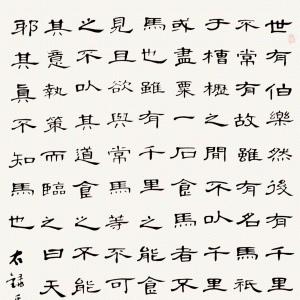 世有伯樂然後有千里
不常有故雖有名馬祇
于槽櫪之間不以千里
或盡粟一石食馬者不
馬也雖有千里之能食
見且欲與常馬等不可
之不以其道食之不能
其意執策而臨之曰天
耶其真不知馬也